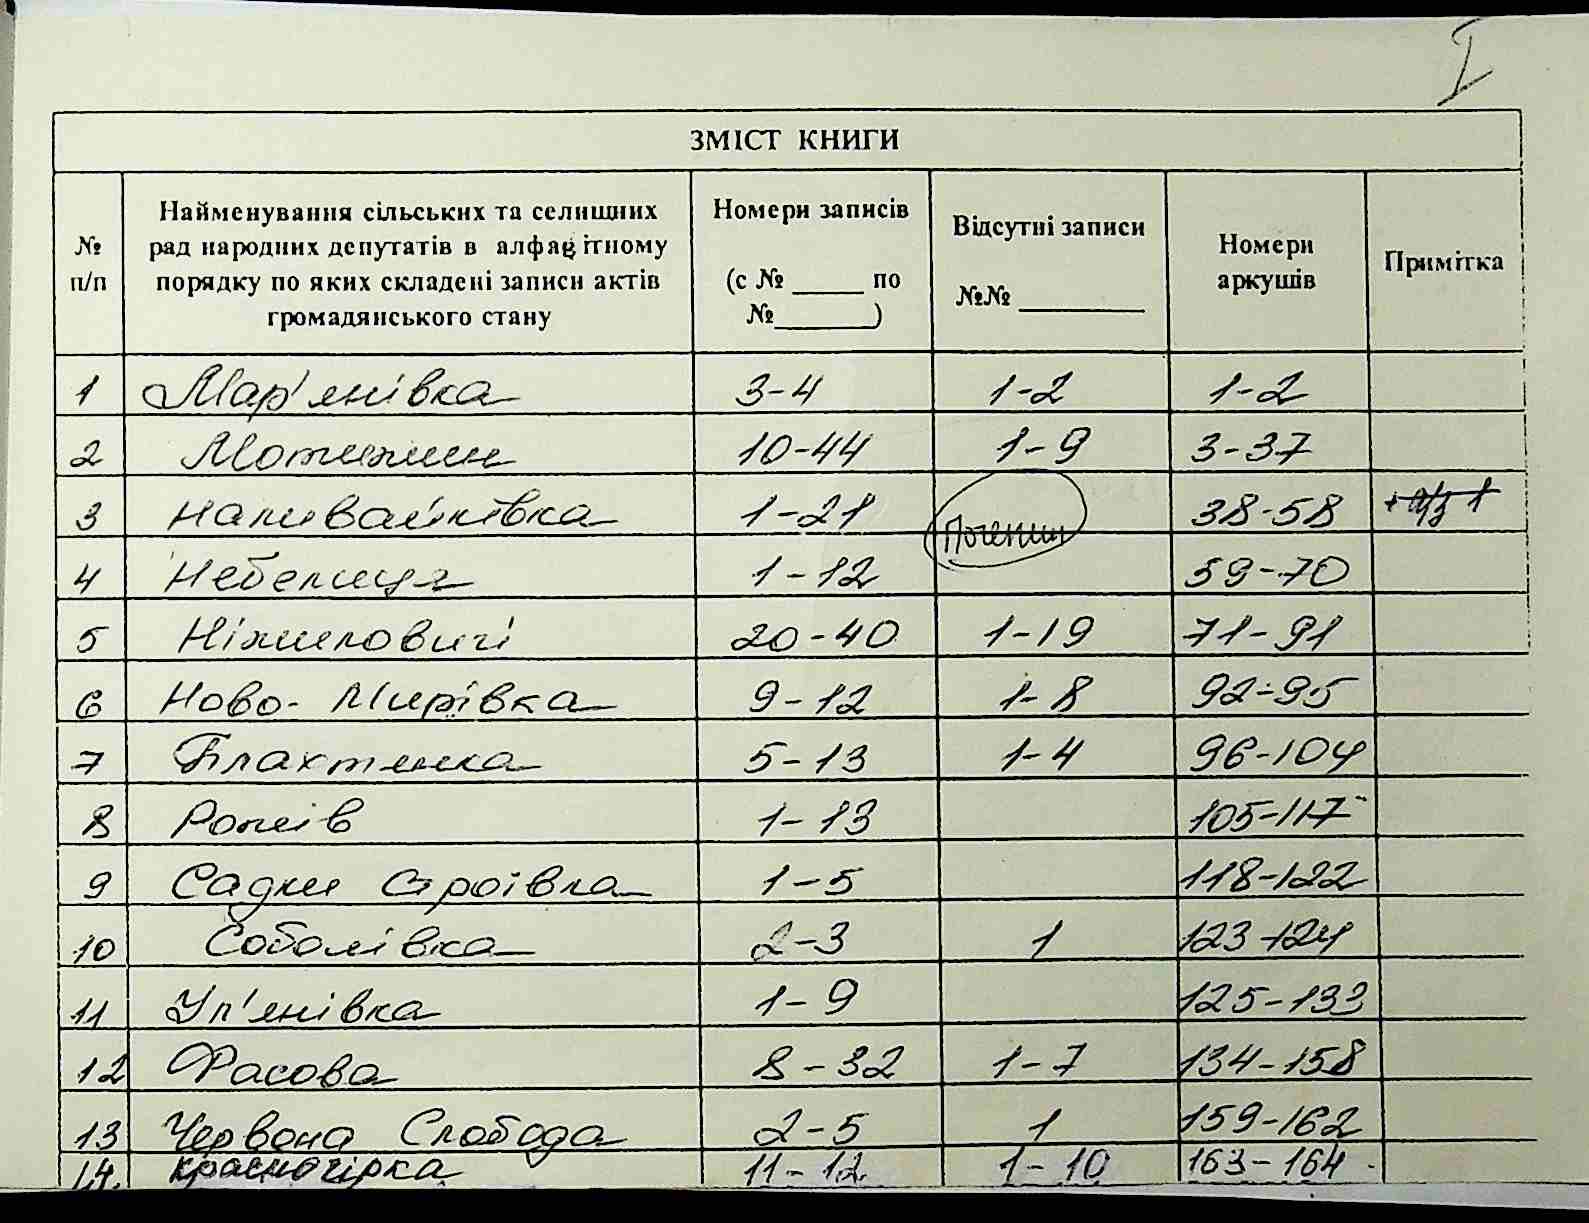 I
ЗМІСТ КНИГИ
№ п/п
Найменування сільських та селищних рад народних депутатів в алфавітному порядку по яких складені записи актів громадянського стану
Номери записів (с № _____ по №_______)
Відсутні записи №№ _________
Номери аркушів
Примітка
1 Мар'янівка 3-4 1-2 1-2
2 Мотижин 10-44 1-9 3-37
3 Наливайківка 1-21 38-58
4 Небелиця 1-12 59-70
5 Ніжиловичі 20-40 1-19 71-91
6 Ново-Мирівка 9-12 1-8 92-95
7 Плахтянка 5-13 1-4 96-104
8 Рожів 1-13 105-117
9 Садки Строївка 1-5 118-122
10 Соболівка 2-3 1 123-124
11 Ул'янівка 1-9 125-133
12 Фасова 8-32 1-7 134-158
13 Червона Слобода 2-5 1 159-162
14. Красногірка 11-12 1-10 163-164